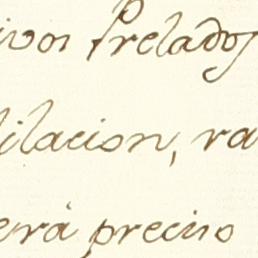 ivos Prelados
ilacion, ra
erá preciso